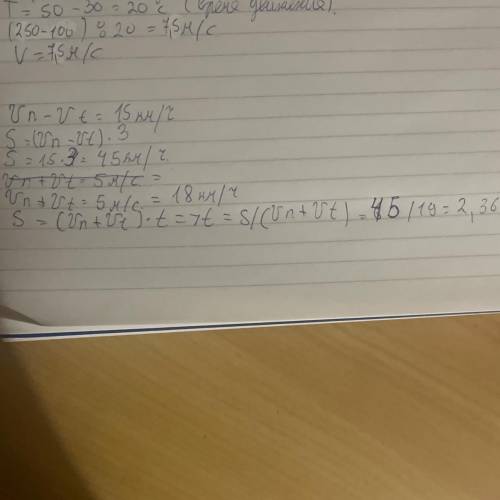 T = 50 - 30 = 20 с (время движения).
(250-100) : 20 = 7,5 м/с
V = 7,5 м/с
Vп - Vт = 15 км/ч
S = (Vп - Vт) · 3
S = 15 · 3 = 45 км/ч.
Vп + Vт = 5 м/с =
Vп + Vт = 5 м/с = 18 км/ч
S = (Vп + Vт) · t => t = S/(Vп + Vт) = 45/19 = 2,36